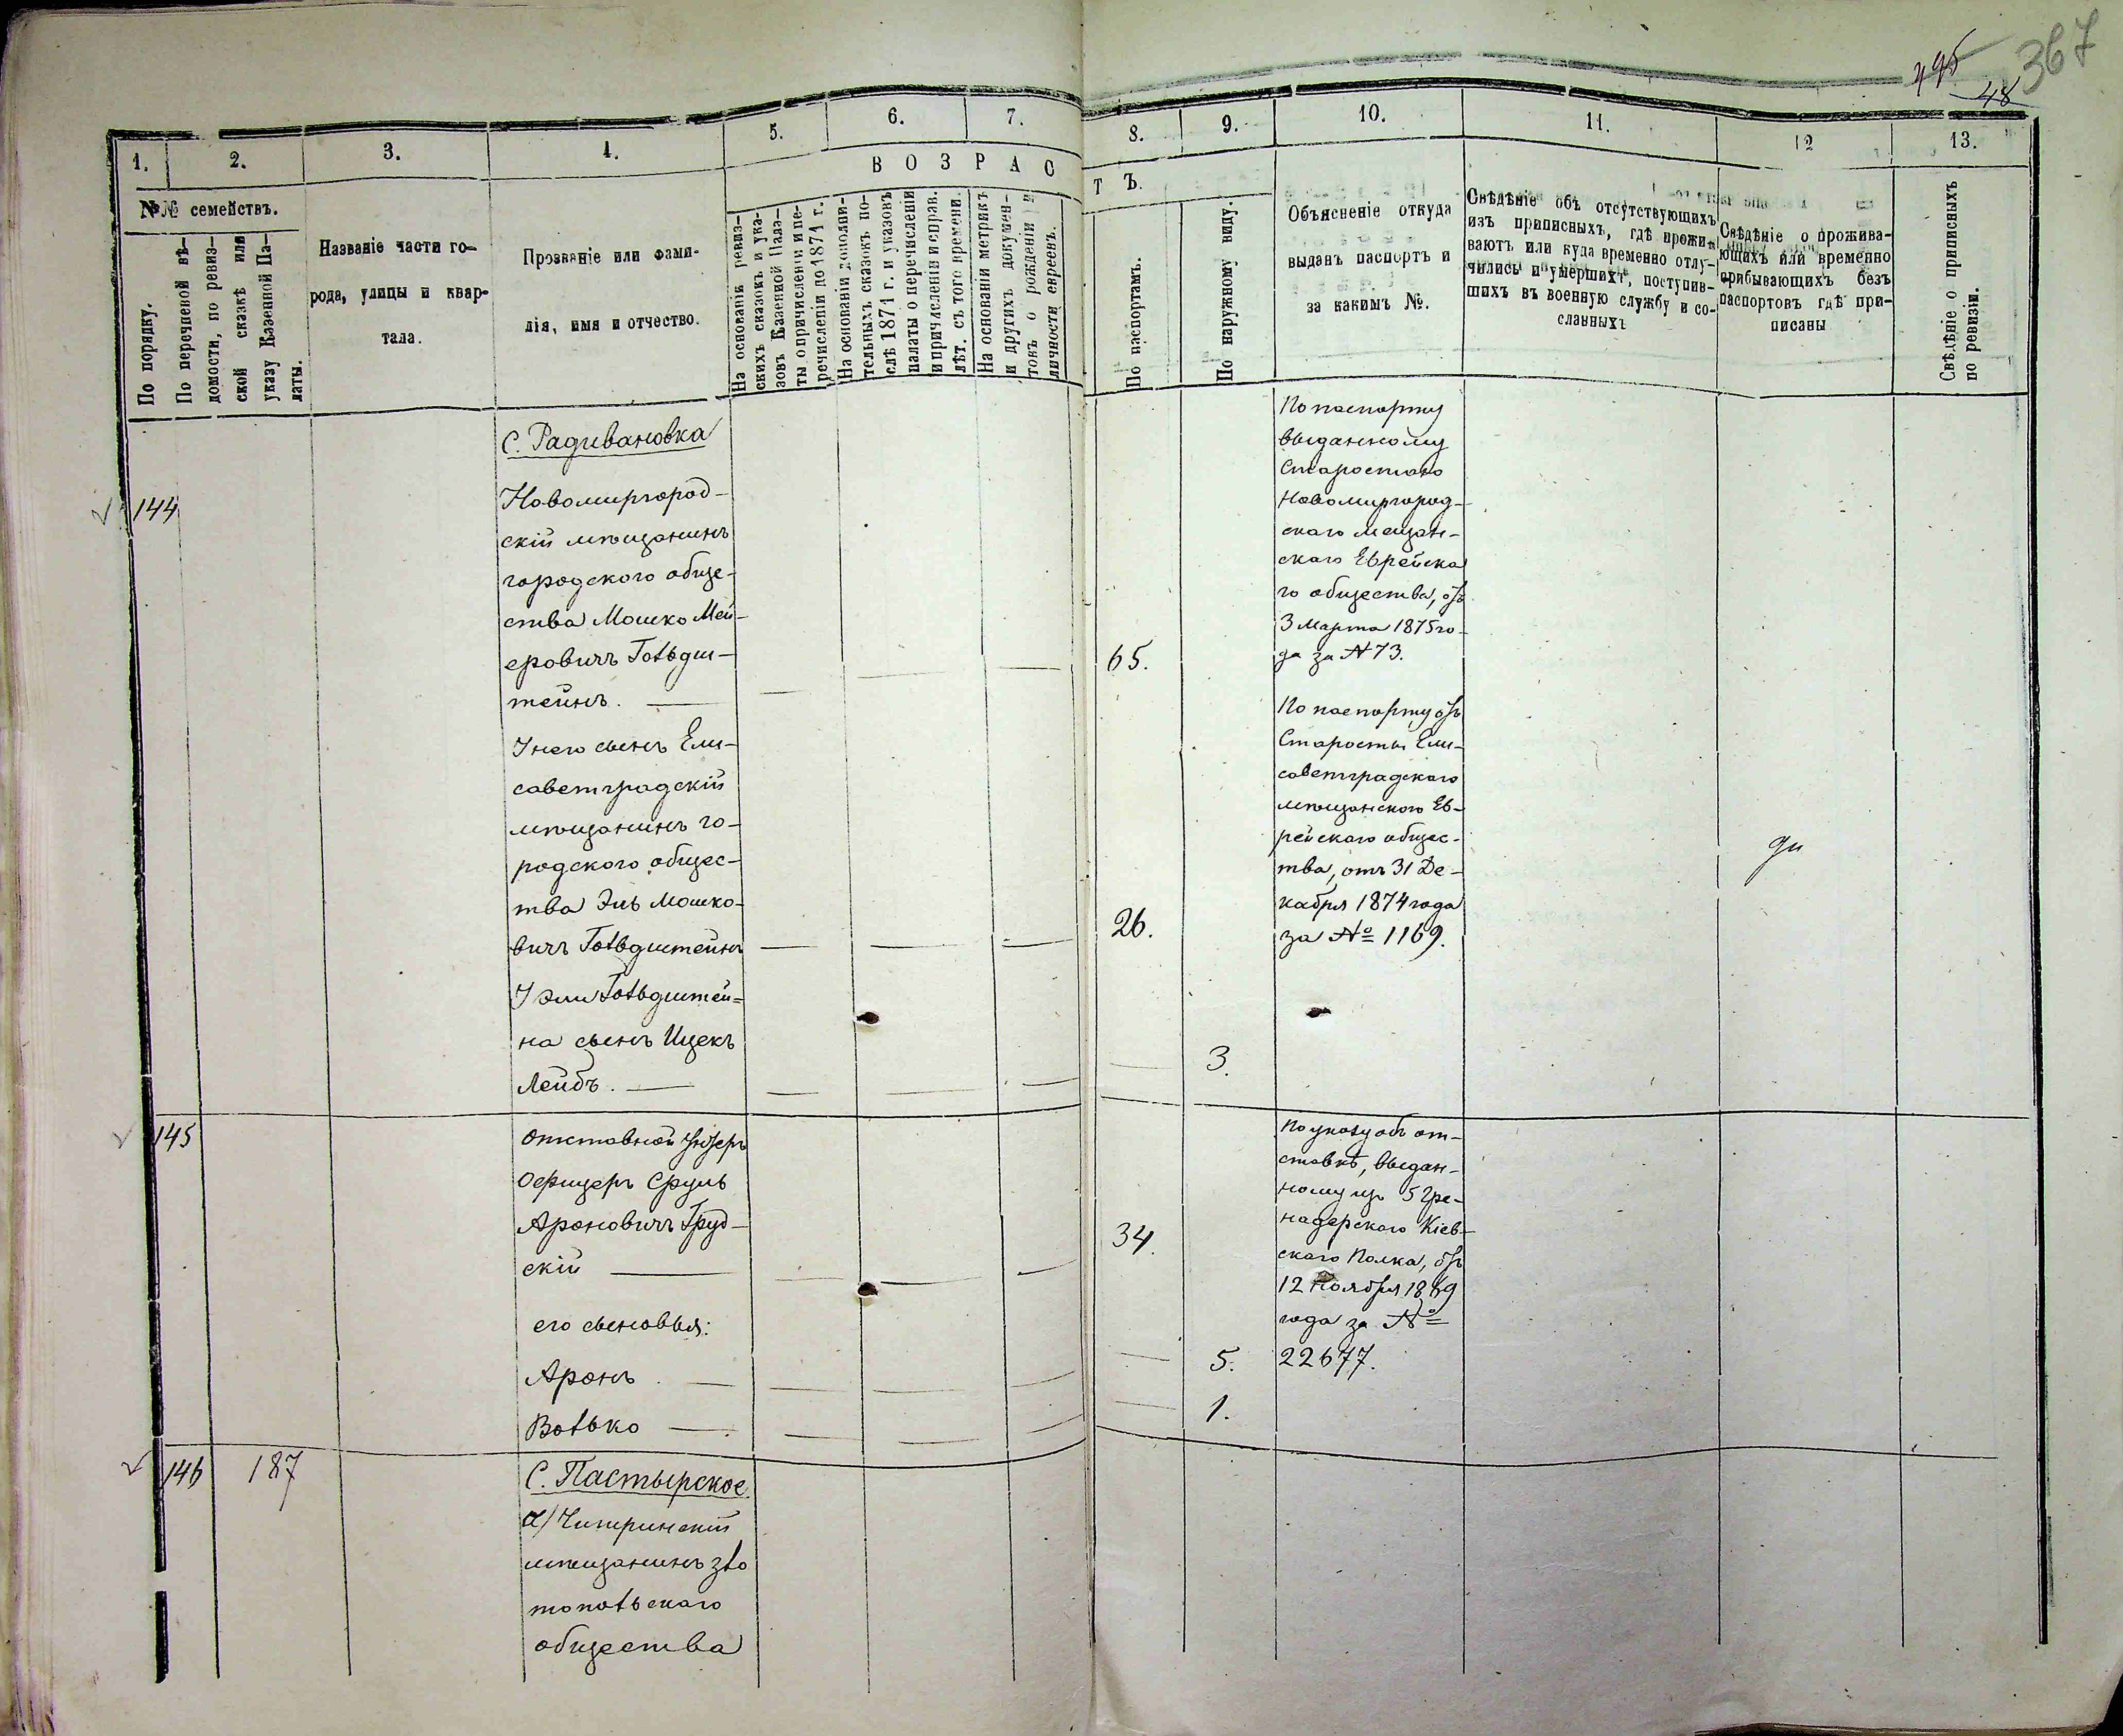 495
367
48
1.
2.
3.
4.
5.
6.
7.
8.
9.
10.
11.
12
13.
В О З Р А С
Т Ъ.
№№ семействъ.
По порядку.
По перечневой вѣ-
домости, по ревиз-
ской сказкѣ или
указу Казенной Па-
латы.
Названіе части го-
рода, улицы и квар-
тала.
Прозваніе или фами-
лія, имя и отчество.
На основаніи ревиз-
скихъ сказокъ и ука-
зовъ Казенной Пала-
ты о причисленіи и пе-
речисленіи до 1871 г.
На основаніи дополни-
тельныхъ сказокъ по-
слѣ 1871 г. и указовъ
палаты о перечисленіи
и причисленіи и справ.
лѣт. съ того времени.
На основаніи метрикъ
и другихъ докумен-
товъ о рожденіи и
личности евреевъ.
По паспортамъ.
По наружному виду.
Объясненіе откуда
выданъ паспортъ и
за какимъ №.
Свѣдѣніе объ отсутствующихъ
изъ приписныхъ, гдѣ прожи-
ваютъ или куда временно отлу-
чились и умершихъ, поступив-
шихъ въ военную службу и со-
сланныхъ
Свѣдѣніе о прожива-
ющихъ или временно
прибывающихъ безъ
паспортовъ гдѣ при-
писаны
Свѣдѣніе о приписныхъ
по ревизіи.
С. Радивановка
144
Новомиргород-
скій мѣщанинъ
городского обще-
ства Мошко Мей-
еровичъ Гольдш-
тейнъ.
65.
По паспорту
выданному
Старостою
Новомиргород-
скаго мещан-
скаго Еврейска
го общества, отъ
3 Марта 1875 го-
да за № 73.
У него сынъ Ели-
саветградскій
мѣщанинъ го-
родского общес-
тва Эль Мошко-
вичъ Гольдштейнъ
26.
По паспорту отъ
Старосты Ели-
саветградского
мѣщанского Ев-
рейскаго общес-
тва, отъ 31 Де-
кабря 1874 года
за № 1169.
У Эли Гольдштей-
на сынъ Ицекъ
Лейбъ.
3.
145
Отставной Унтеръ
Офицеръ Сруль
Ароновичъ Груд-
скій
34.
По указу объ от-
ставкѣ, выдан-
ному изъ 5 Гре-
надерскаго Кіев-
скаго Полка, отъ
12 Ноября 1869
года за №
22677.
его сыновья:
Аронъ
5.
Волько
1.
146
187
С. Пастырское
а) Чигиринскій
мѣщанинъ зло
топольскаго
общества